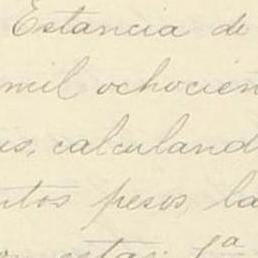 Estancia de
mil ochocien
is, calculand
ntos pesos, la
estas 1ª